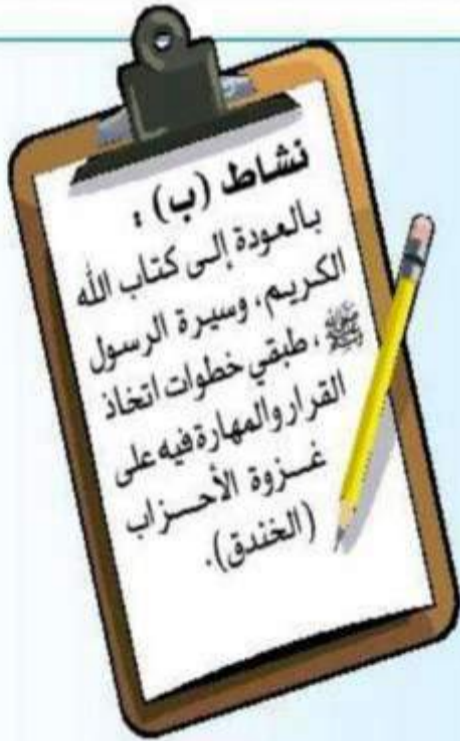 نشاط (ب) :
بالعودة إلى كتاب الله
الكريم، وسيرة الرسول
ﷺ، طبقي خطوات اتخاذ
القرار والمهارة فيه على
غـزوة الأحـزاب
(الخندق).